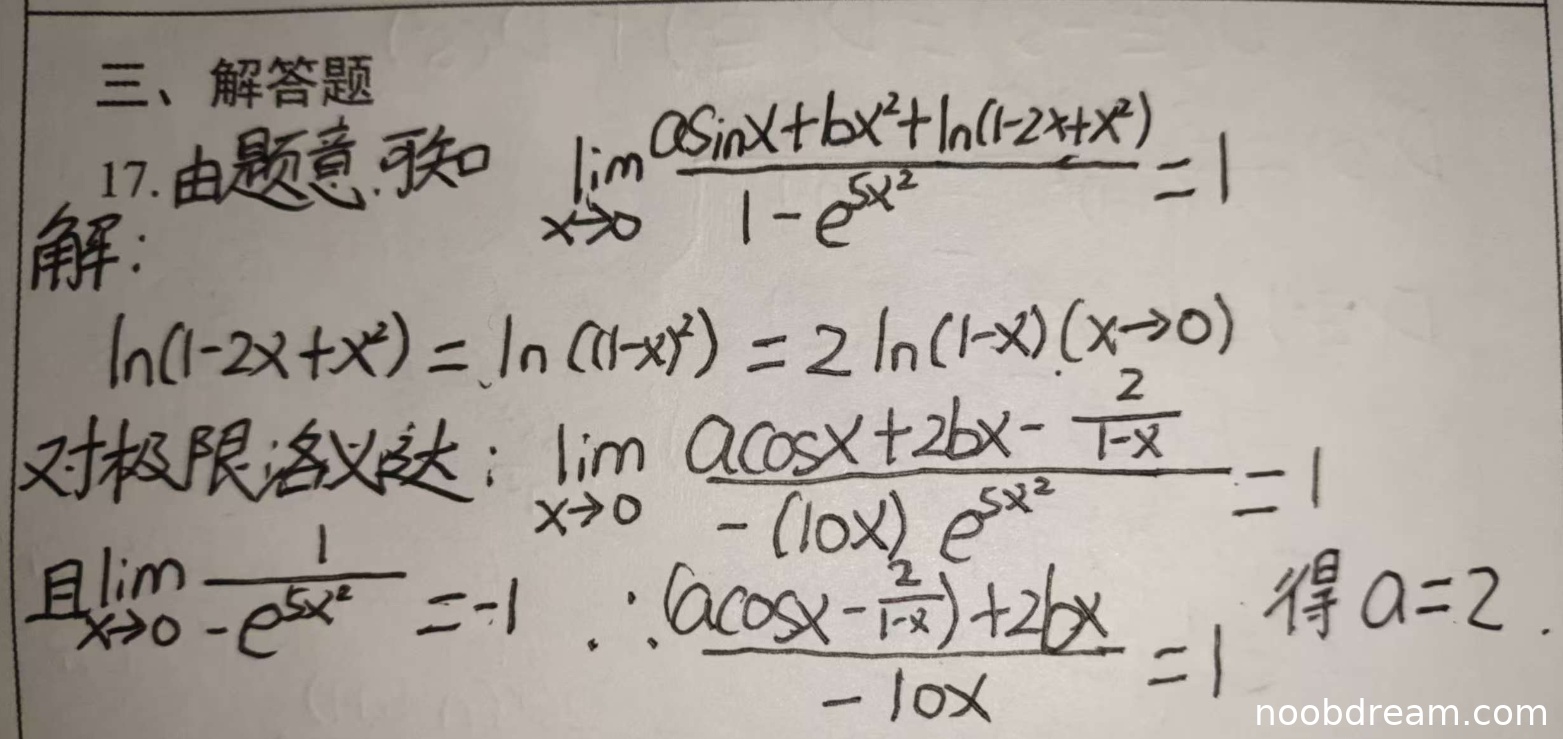 三、解答题
17. 由题意可知 lim x→0 (asinx+bx²+ln(1-2x+x²))/(1-e^{5x²}) = 1
解:
ln(1-2x+x²) = ln((1-x)²) = 2ln(1-x) (x→0)
对极限洛必达: lim x→0 (acosx+2bx-2/(1-x))/(-(10x)e^{5x²}) = 1
且 lim x→0 1/(-e^{5x²}) = -1 ∴ ((acosx-2/(1-x))+2bx)/(-10x) = 1 得 a=2.
noobdream.com